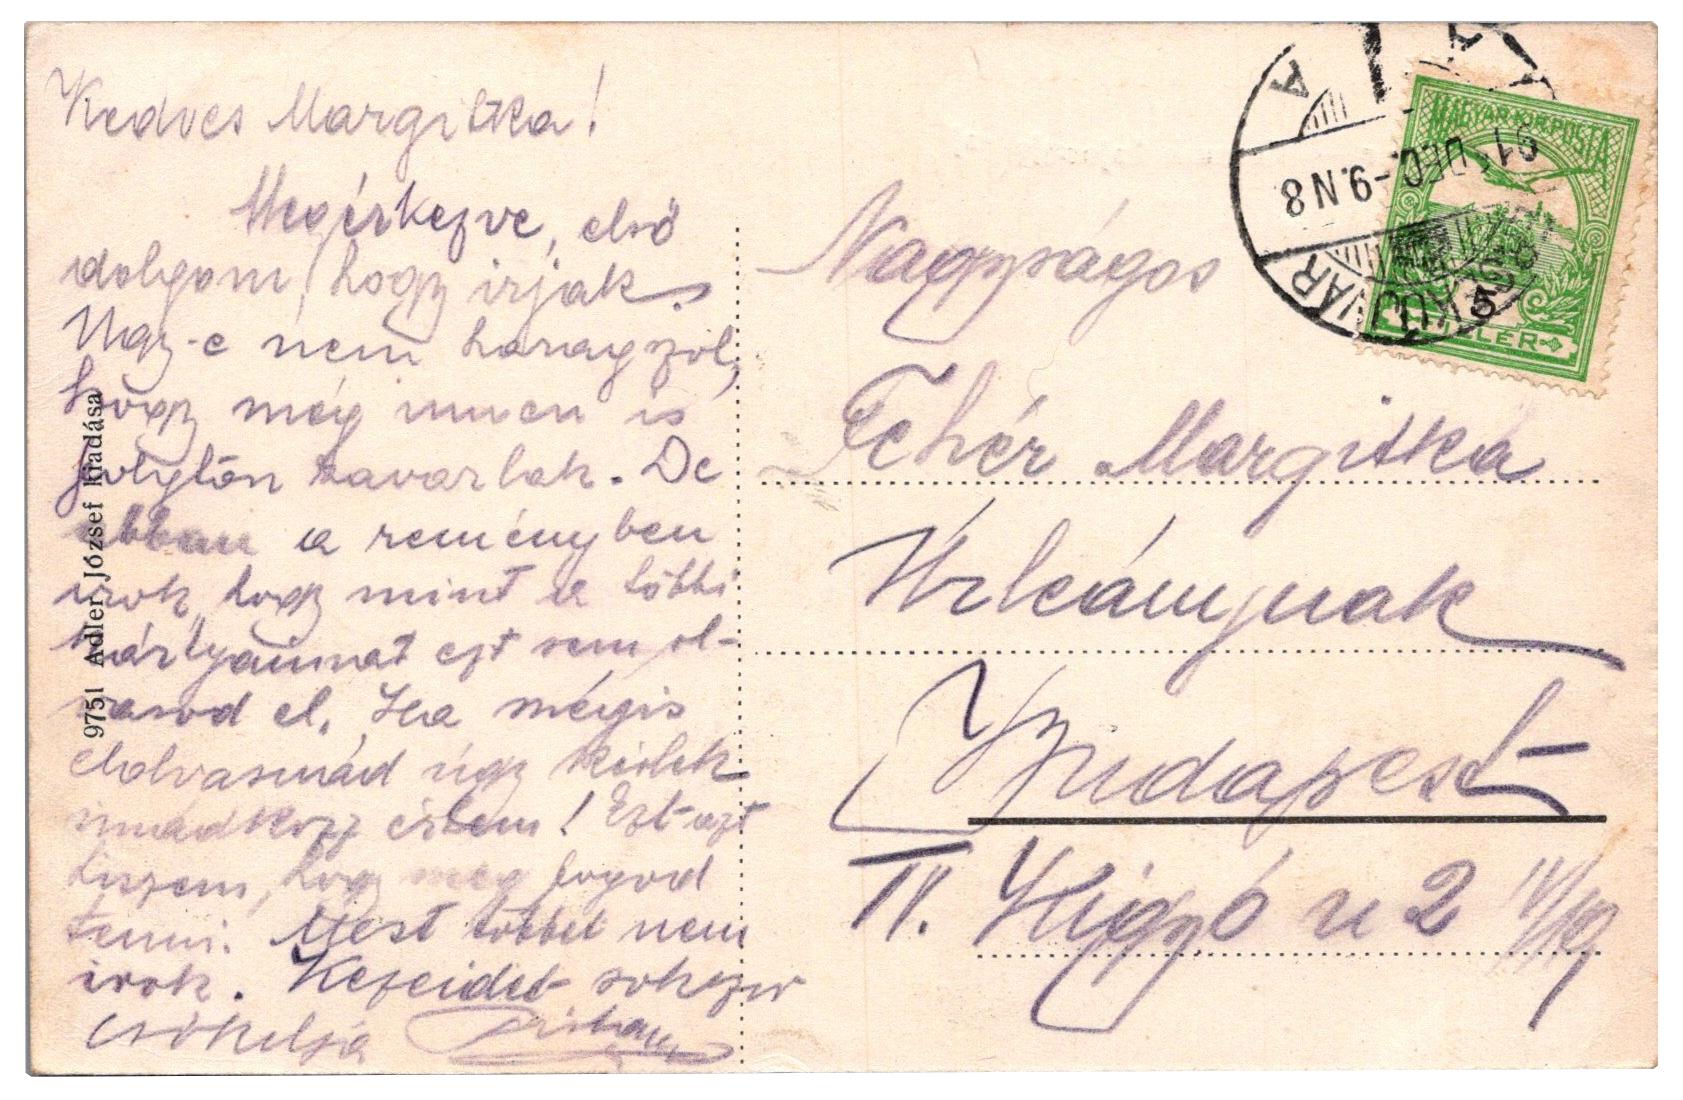 Kedves Margitka!
Megérkezve, első
dolgom, hogy irjak.
Ugy-e nem haragszol,
hogy még innen is
folyton zavarlak. De
abban a reményben
irok, hogy mint a többi
kártyáimat ezt sem ol-
vasod el. Ha mégis
elolvasnád úgy kérlek
imádkozz értem! Ezt azt
hiszem, hogy meg fogod
tenni. Mest többet nem
irok. Kezeidet sokszor
csókolja
9751 Adler József kiadása
MAGYAR KIR. POSTA
DEC. -9. N 8
A
Nagyságos
Fehér Margitka
Úrleánynak
Budapest
IV. Kigyó u 2